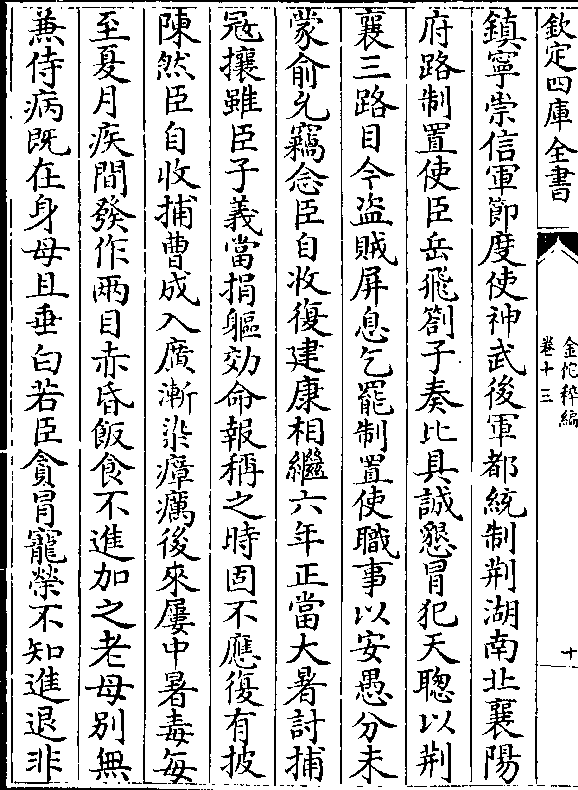 欽定四庫全書
金佗稡編
卷十三
十
鎮寧崇信軍節度使神武後軍都統制荆湖南北襄陽
府路制置使臣岳飛劄子奏比具誠懇冒犯天聰以荆
襄三路目今盜賊屏息乞罷制置使職事以安愚分未
蒙俞允竊念臣自收復建康相繼六年正當大暑討捕
冦攘雖臣子義當捐軀効命報稱之時固不應復有披
陳然臣自收捕曹成入廣漸染瘴癘後來屢中暑毒每
至夏月疾間發作兩目赤昏飯食不進加之老母別無
兼侍病既在身母且垂白若臣貪冒寵榮不知進退非